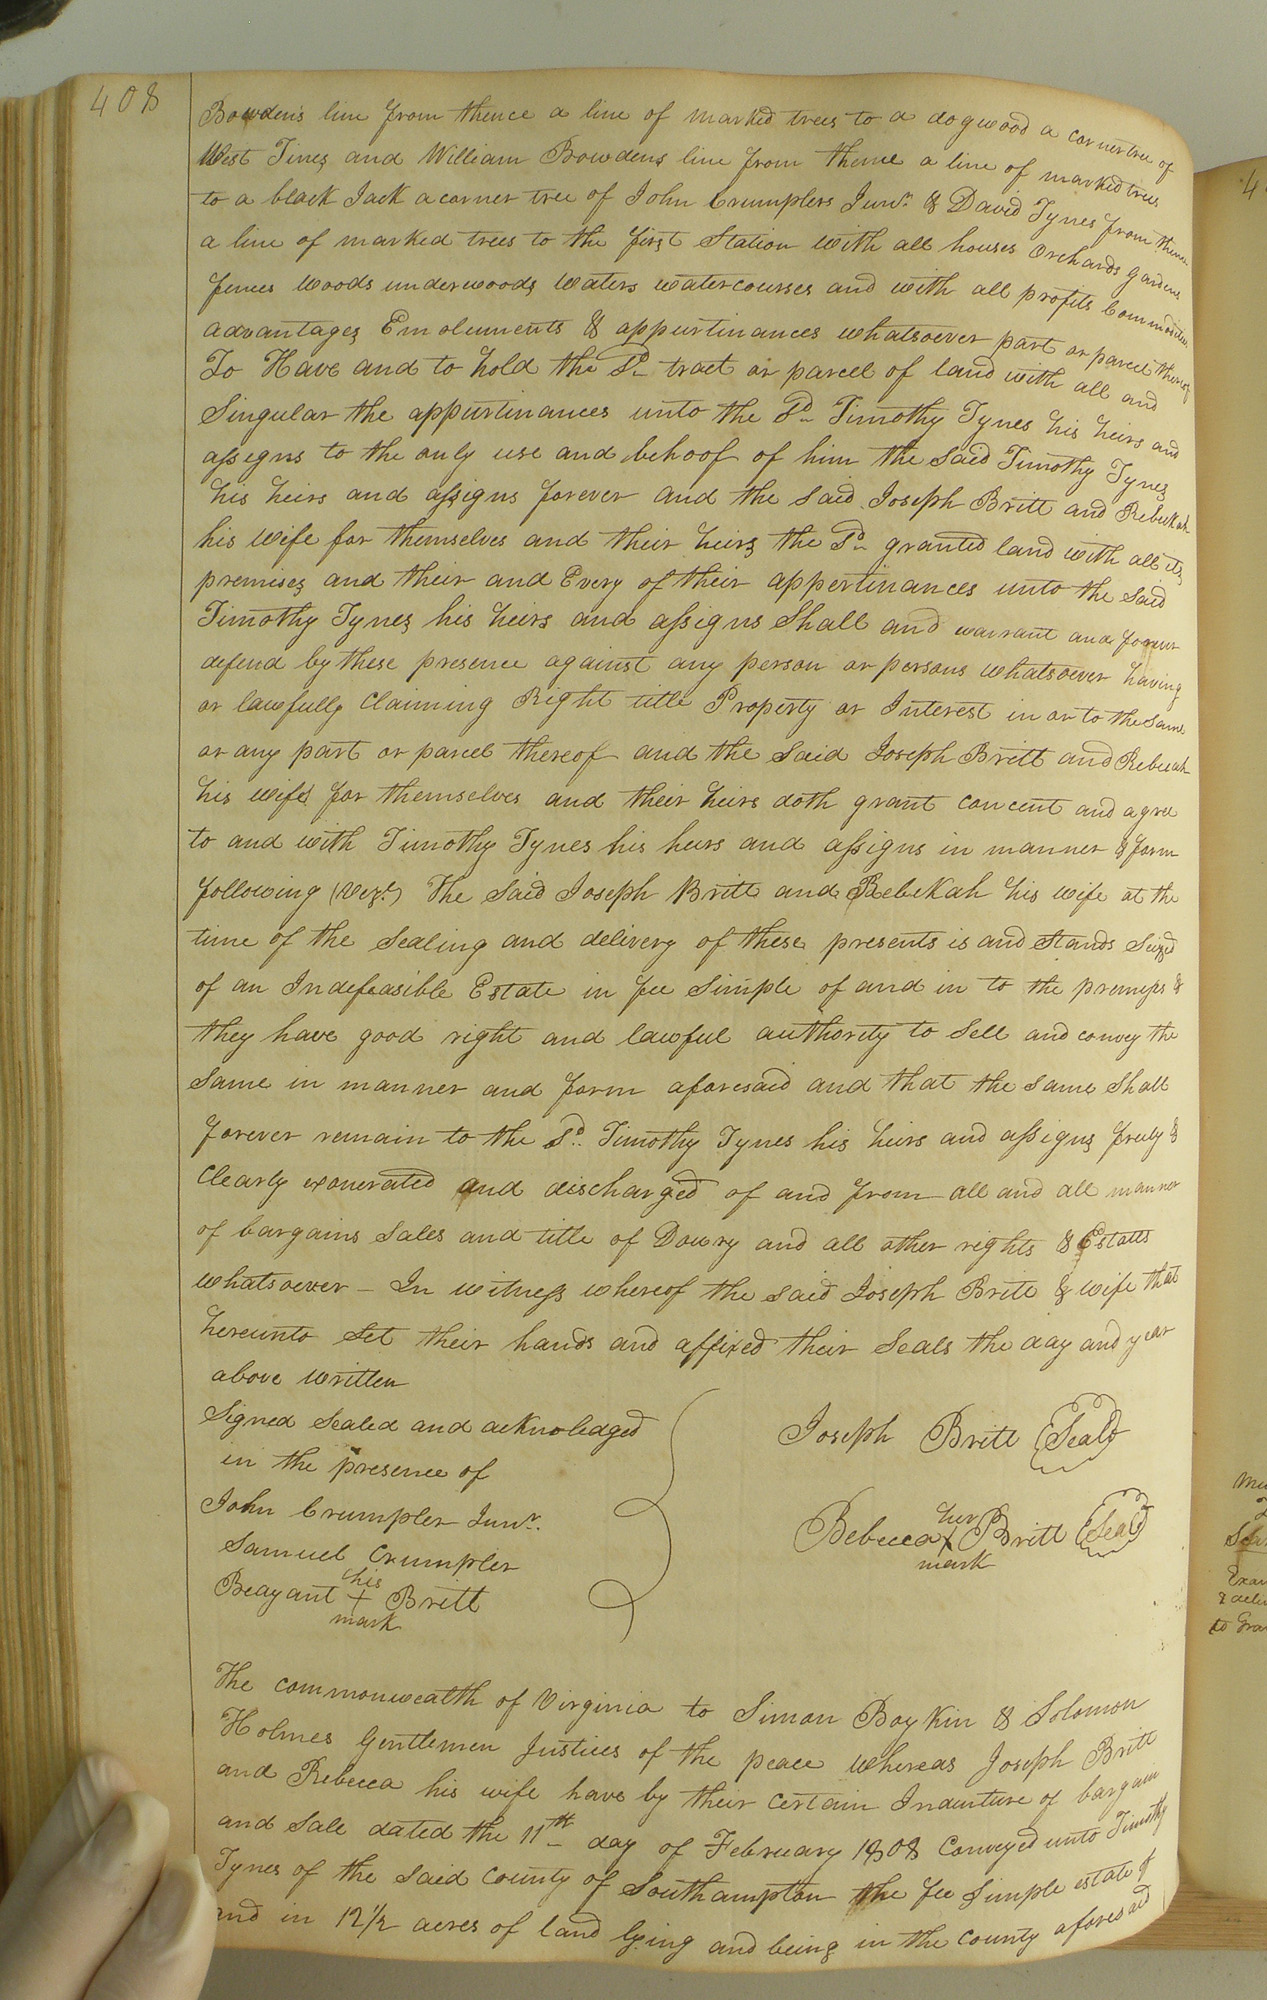 408
Bowdens line from thence a line of marked trees to a dogwood a corner tree of
West Tines and William Bowdens line from thence a line of marked trees
to a black Jack a corner tree of John Crumplers Junr. & David Tynes from thence
a line of marked trees to the first Station with all houses Orchards gardens
fences woods underwoods waters watercourses and with all profits Commodities
advantages Emoluments & appurtinances whatsoever part or parcel thereof
To Have and to hold the Sd. tract or parcel of land with all and
Singular the appurtinances unto the Sd. Timothy Tynes his heirs and
assigns to the only use and behoof of him the said Timothy Tynes
his heirs and assigns forever and the said Joseph Britt and Rebekah
his wife for themselves and their heirs the Sd. granted land with all its
premises and their and Every of their appertinances unto the said
Timothy Tynes his heirs and assigns Shall and warrant and forever
defend by these presence against any person or persons whatsoever having
or lawfully Claiming Right title Property or Interest in or to the same
or any part or parcel thereof and the said Joseph Britt and Rebecah
his wife for themselves and their heirs doth grant concent and agree
to and with Timothy Tynes his heirs and assigns in manner & form
following (Vizt.) The said Joseph Britt and Rebekah his wife at the
time of the Sealing and delivery of these presents is and Stands Seized
of an Indefeasible Estate in fee Simple of and in to the premises &
they have good right and lawful authority to Sell and convey the
same in manner and form aforesaid and that the same Shall
forever remain to the Sd. Timothy Tynes his heirs and assigns freely &
Clearly exonerated and discharged of and from all and all manner
of bargains Sales and title of Dowry and all other rights & Estates
whatsoever - In witness whereof the said Joseph Britt & wife that
hereunto Set their hands and affixed their Seals the day and year
above written
Signed Sealed and acknoledged
in the presence of
John Crumpler Junr.
Samuel Crumpler
his
Beayant + Britt
mark
Joseph Britt (Seal)
her
Rebecca X Britt (Seal)
mark
The commonwealth of Virginia to Simon Boykin & Solomon
Holmes Gentlemen Justices of the peace whereas Joseph Britt
and Rebecca his wife have by their Certain Indenture of bargain
and Sale dated the 11th day of February 1808 Conveyed unto Timothy
Tynes of the said County of Southampton the fee Simple estate of
and in 12 1/2 acres of land lying and being in the County aforesaid